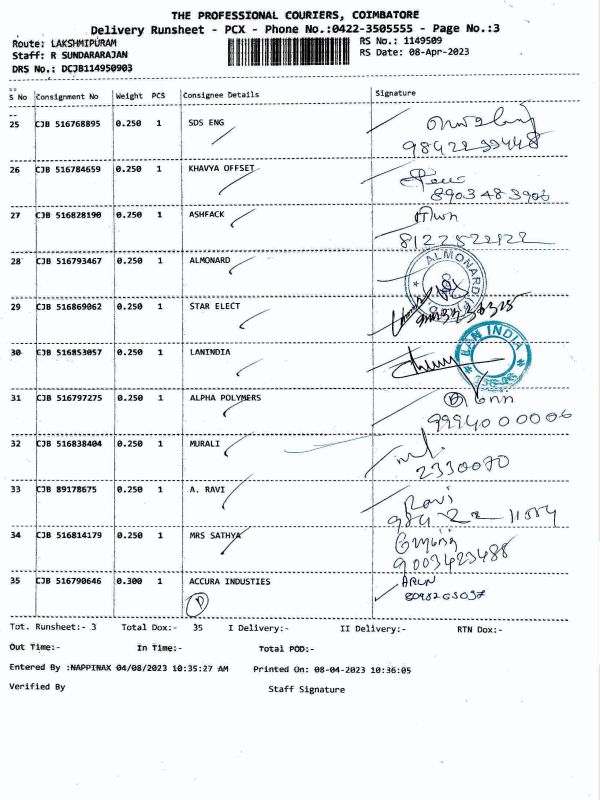 THE PROFESSIONAL COURIERS, COIMBATORE
Delivery Runsheet - PCX - Phone No.:0422-3505555 - Page No.:3
Route: LAKSHMIPURAM
RS No.: 1149509
Staff: R SUNDARARAJAN
RS Date: 08-Apr-2023
DRS No.: DCJB114950903
S No Consignment No Weight PCS Consignee Details Signature
25 CJB 516768895 0.250 1 SDS ENG
26 CJB 516784659 0.250 1 KHAVYA OFFSET
8903483906
27 CJB 516828190 0.250 1 ASHFACK
8122522122
28 CJB 516793467 0.250 1 ALMONARD
ALMONARD
29 CJB 516869062 0.250 1 STAR ELECT
30 CJB 516853057 0.250 1 LANINDIA
LAN INDIA
31 CJB 516797275 0.250 1 ALPHA POLYMERS
9994000006
32 CJB 516838404 0.250 1 MURALI
2330070
33 CJB 89178675 0.250 1 A. RAVI
Ravi
34 CJB 516814179 0.250 1 MRS SATHYA
9003423488
35 CJB 516790646 0.300 1 ACCURA INDUSTIES
ARUN
P
Tot. Runsheet:- 3 Total Dox:- 35 I Delivery:- II Delivery:- RTN Dox:-
Out Time:- In Time:- Total POD:-
Entered By :NAPPINAX 04/08/2023 10:35:27 AM Printed On: 08-04-2023 10:36:05
Verified By Staff Signature